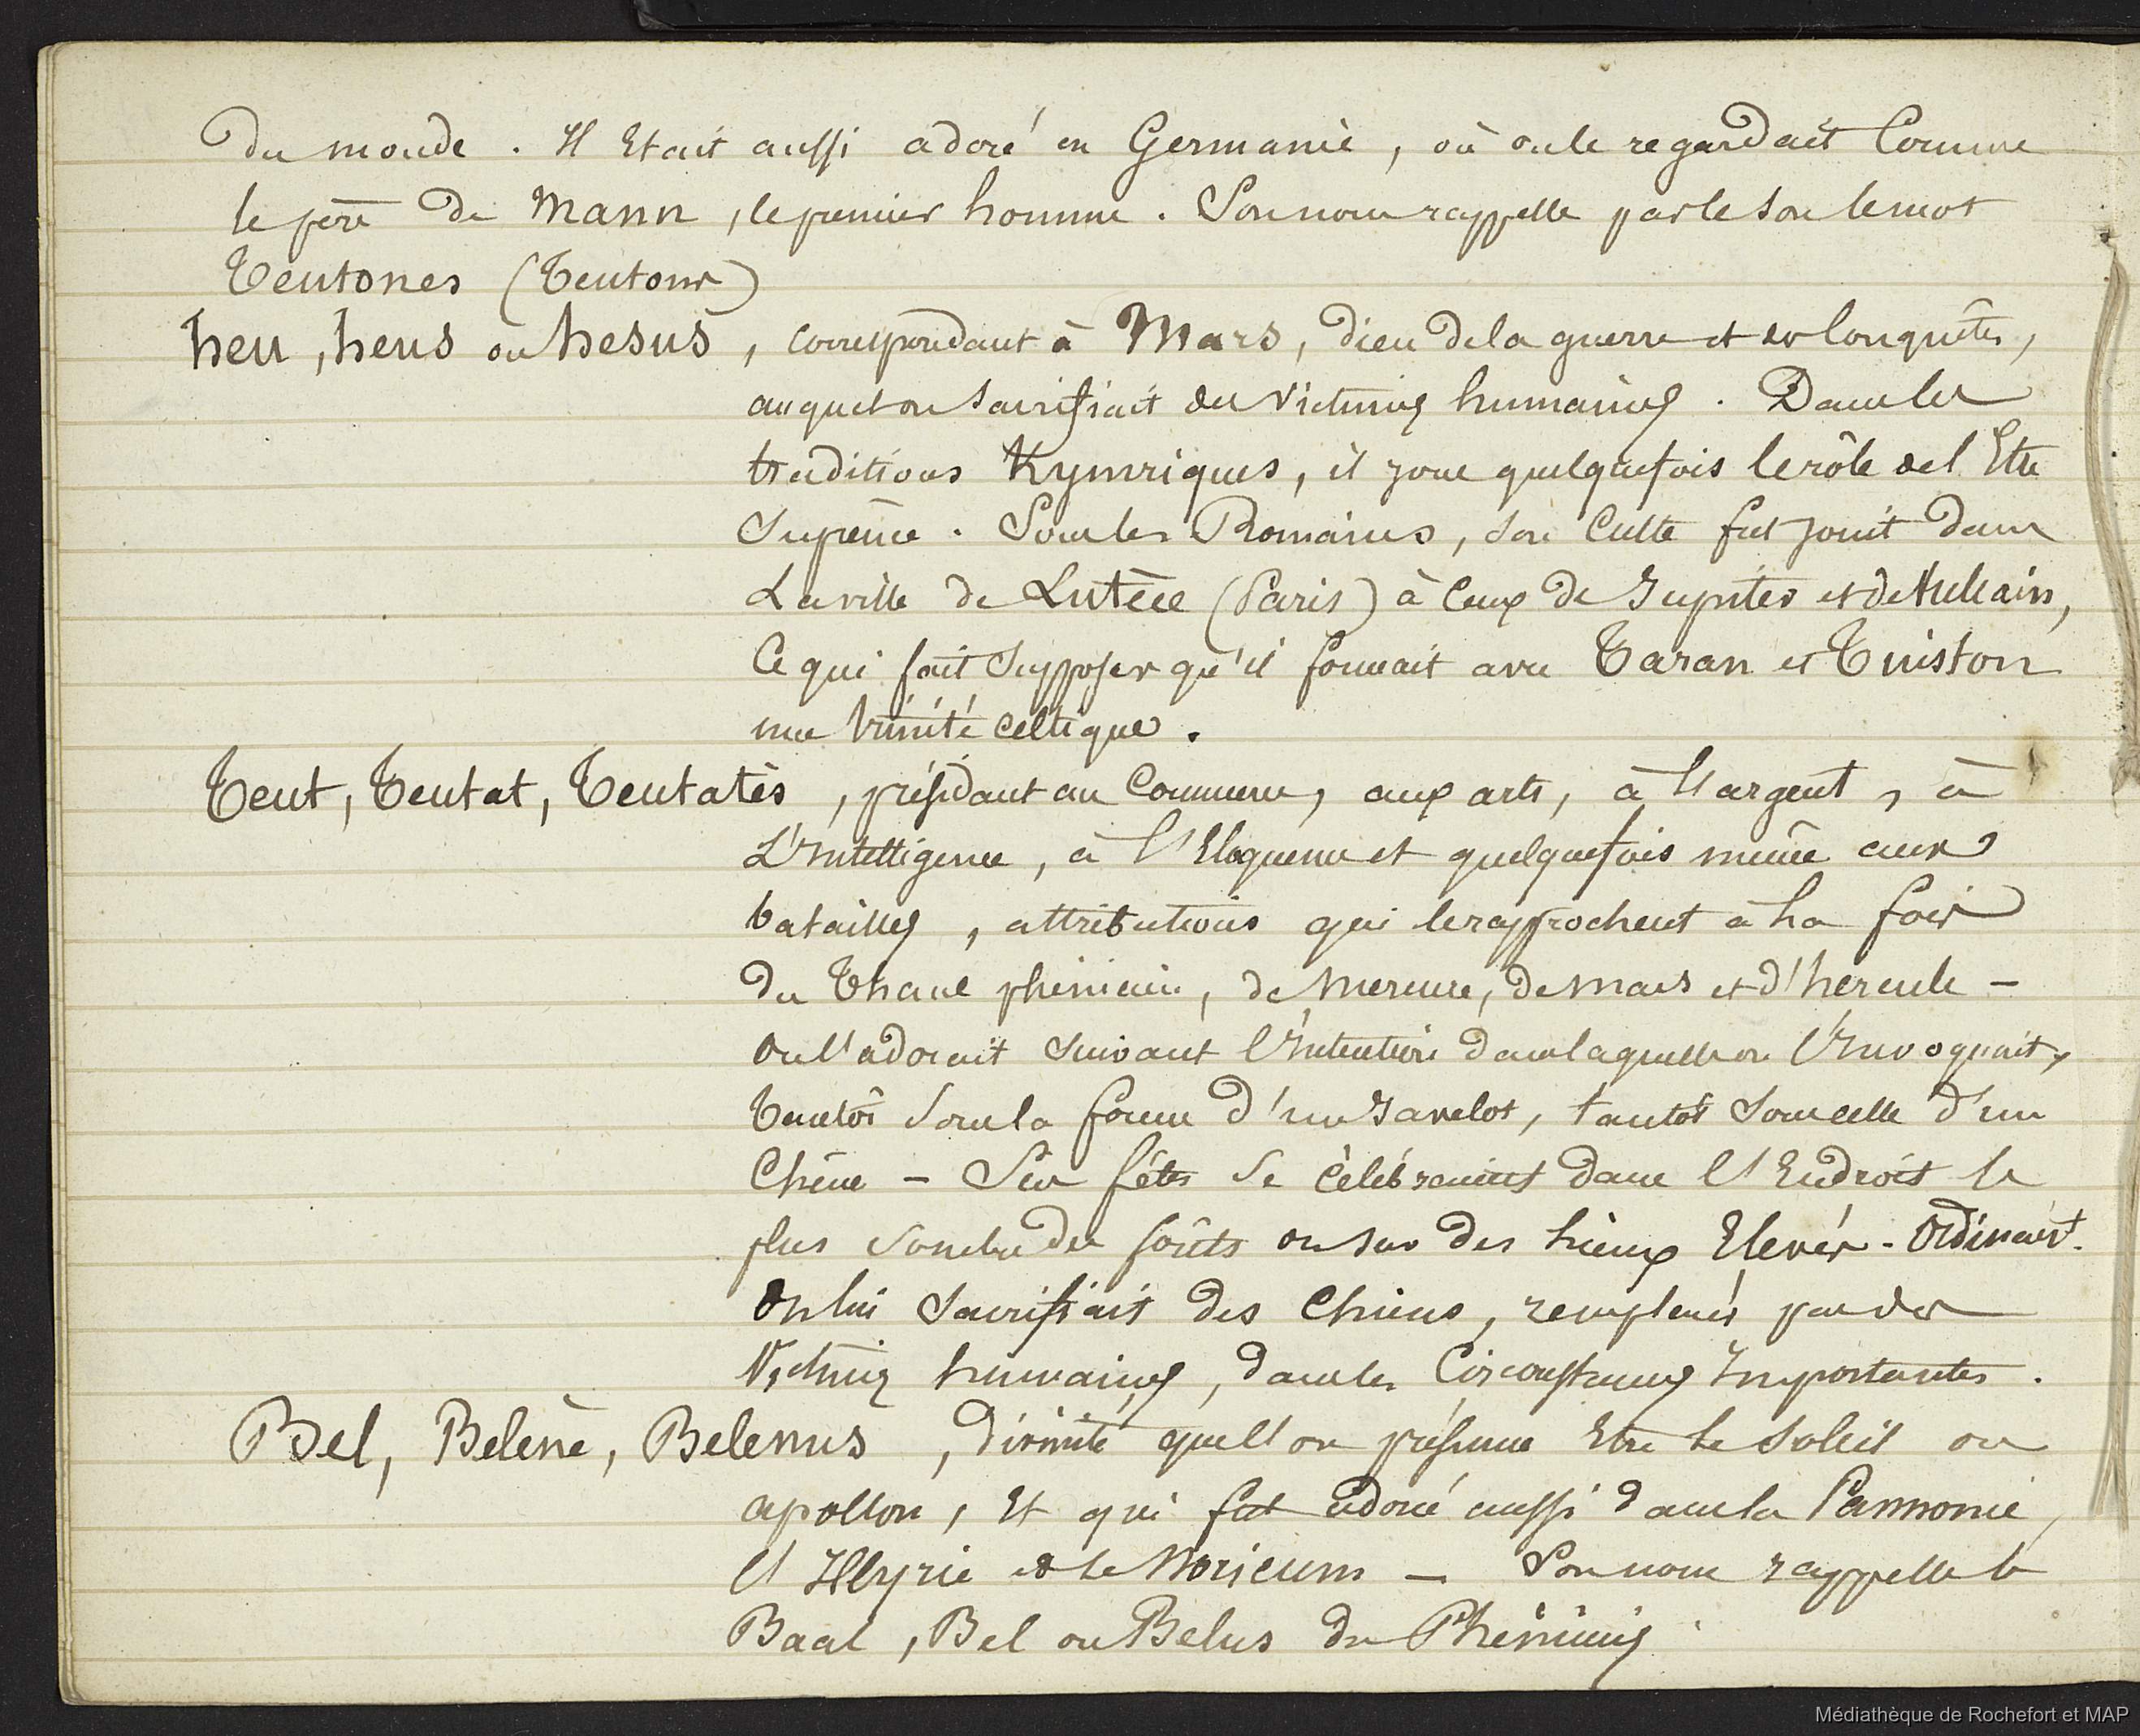 du monde. Il Etait aussi adoré en Germanie, où on le regardait Comme
le père de Mann, le premier homme. Son nom rappelle par le son le mot
Teutones (Teutons)
heu, heus ou hesus, correspondant à Mars, dieu de la guerre et des Conquêtes,
auquel on sacrifiait des Victimes humaines. Dans les
traditions Kymriques, il joue quelquefois le rôle de l'Etre
Suprême. Sous les Romains, son Culte fut joint dans
La ville de Lutèce (Paris) à Ceux de Jupiter et de Vulcain,
Ce qui fait Supposer qu'il formait avec Taran et Tuiston
une trinité celtique.
Teut, Teutat, Teutatès, présidant au Commerce, aux arts, à l'argent, à
L'Intelligence, à l'Eloquence et quelquefois même aux
batailles, attributions qui le rapprochent à la fois
du phénicien, de Mercure, de Mars et d'hercule -
on l'adorait suivant l'Intention dans laquelle on l'Invoquait,
tantôt sous la forme d'un Javelot, tantôt sous celle d'un
Chêne - Ses fêtes se célébraient dans l'Endroit le
plus sombre des forêts ou sur des lieux Elevés - Ordinairt.
On lui Sacrifiait des Chiens, remplacés par des
Victimes humaines, dans les Circonstances Importantes.
Bel, Belène, Belenus, divinité que l'on présume Etre le Soleil ou
apollon, Et qui fut adoré aussi dans la Pannonie,
l'Illyrie et le Noricum - Son nom rappelle le
Baal, Bel ou Belus des Phéniciens
Médiathèque de Rochefort et MAP